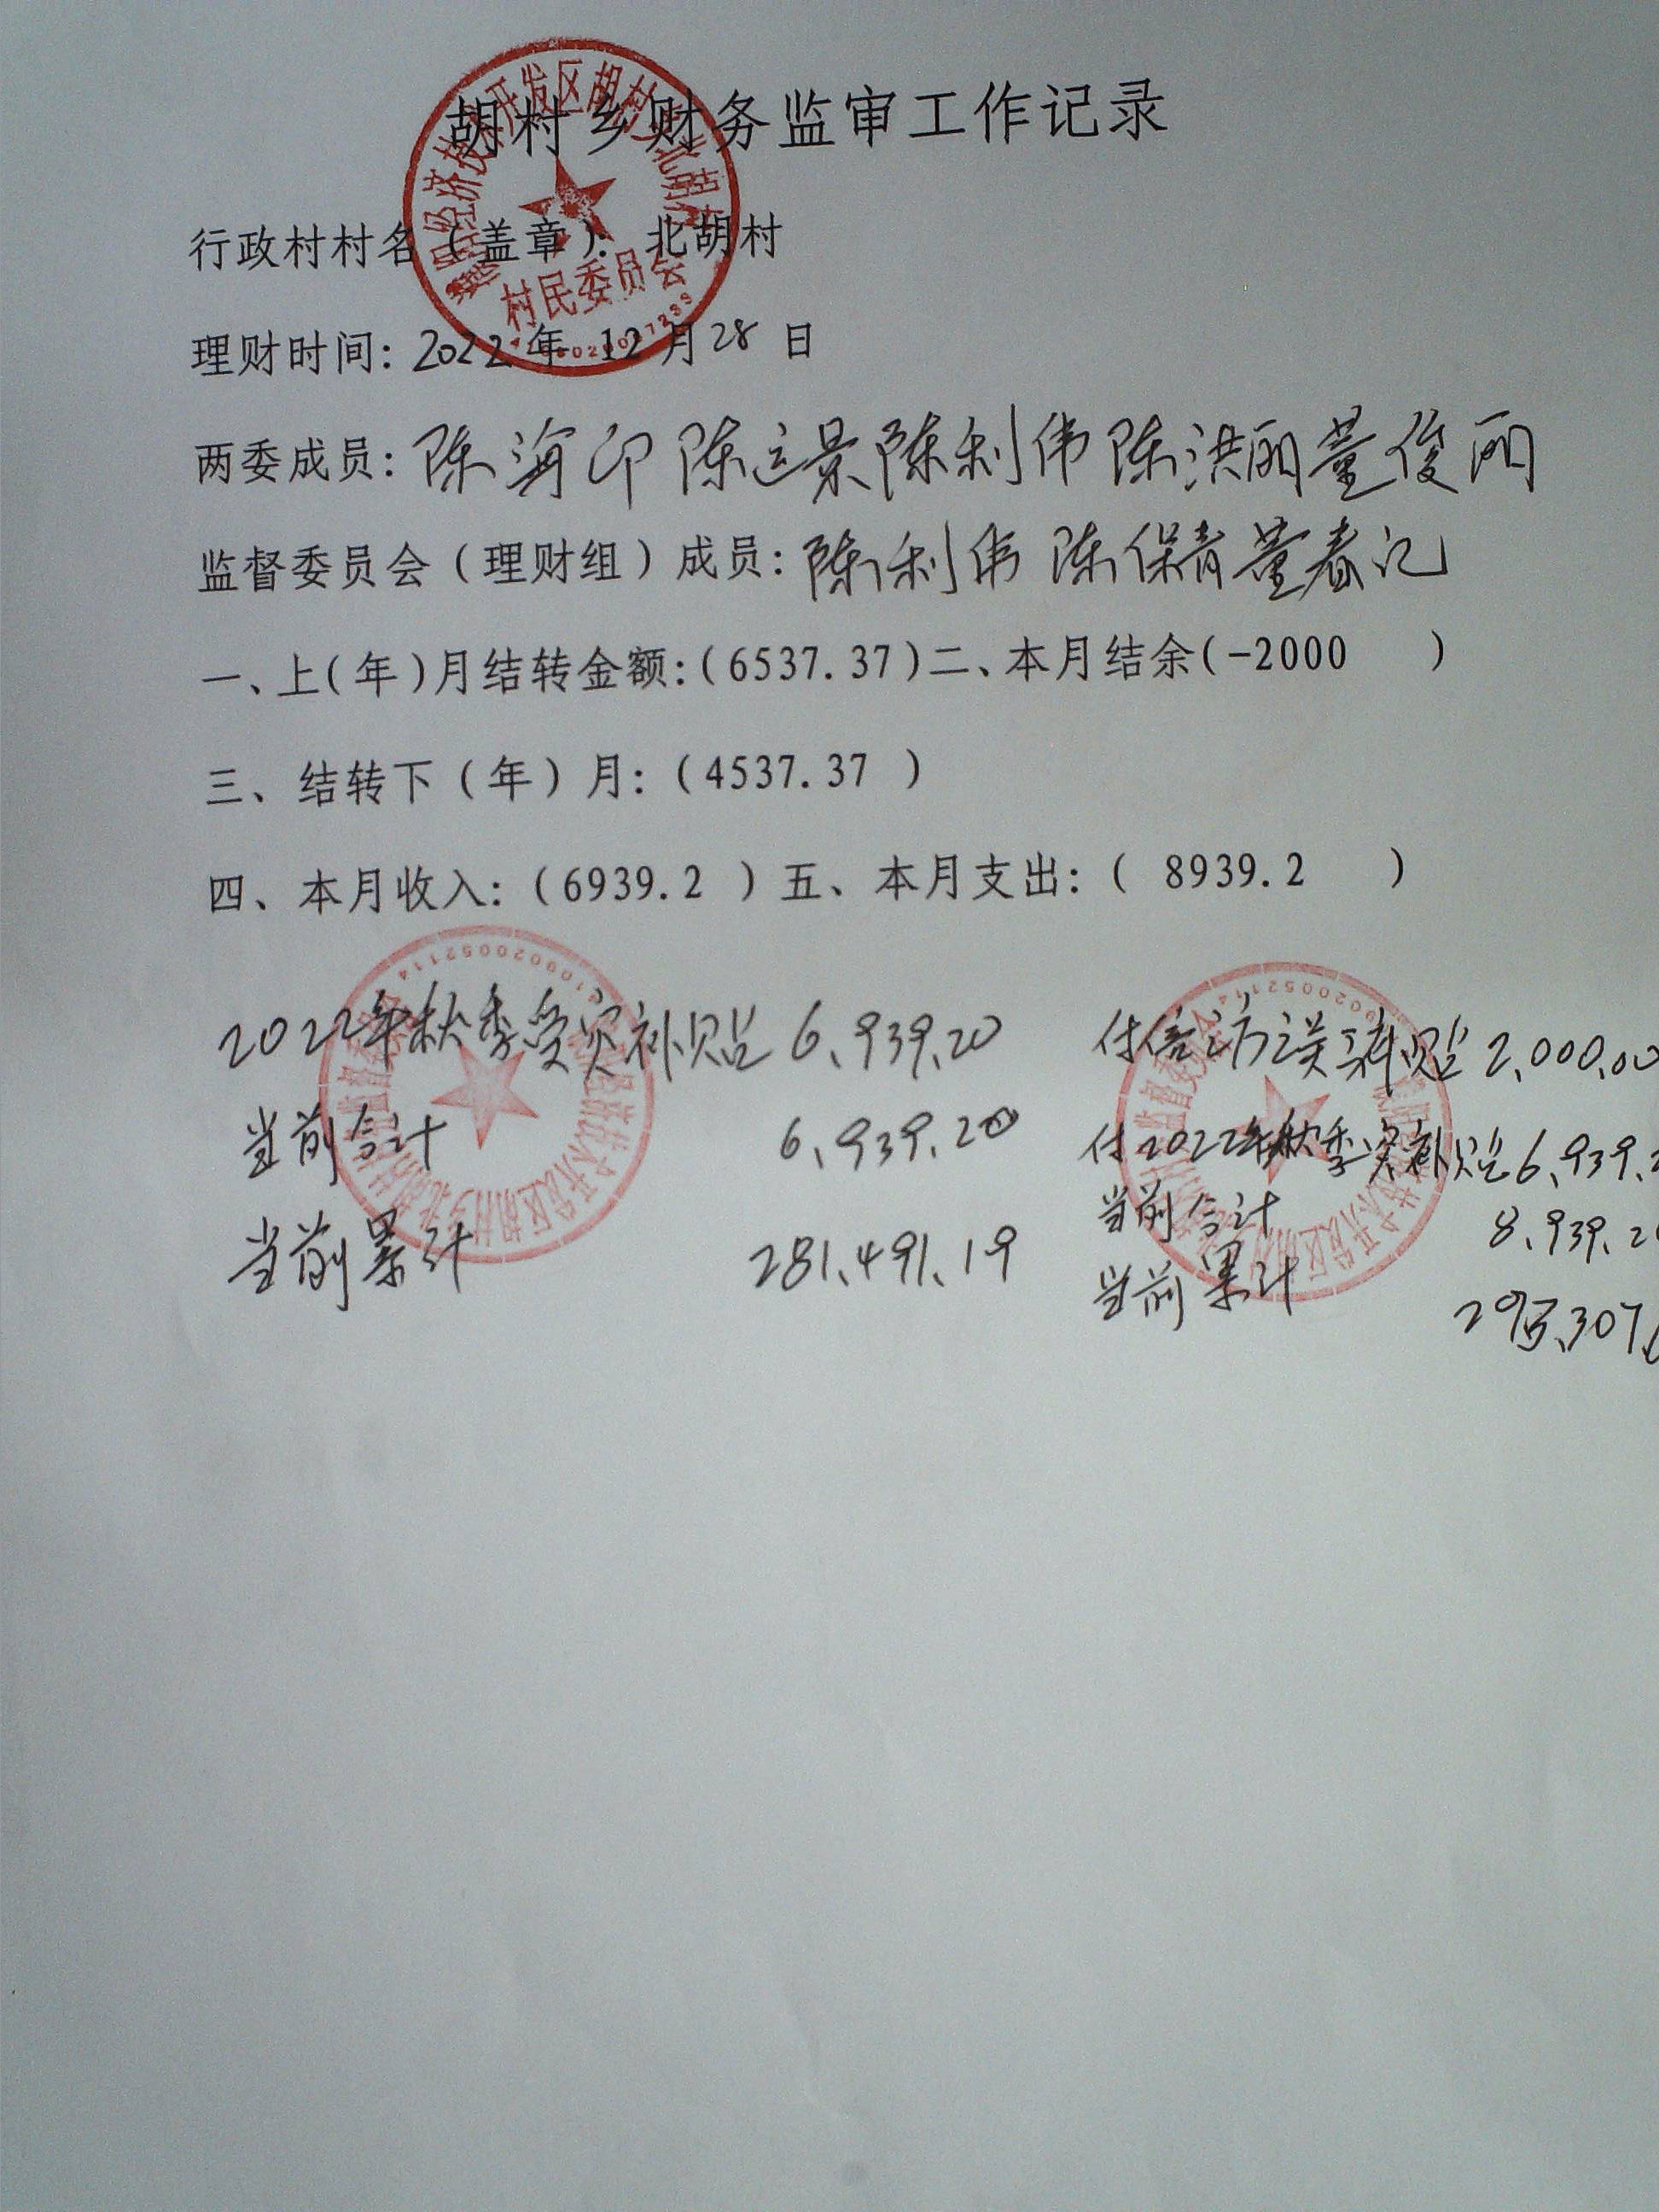 胡村乡财务监审工作记录
行政村村名(盖章): 北胡村
村民委员会
理财时间: 2022年 12月28日
两委成员: 陈海印 陈运景 陈利伟 陈洪丽 董俊丽
监督委员会(理财组)成员: 陈利伟 陈保青 董春记
一、上(年)月结转金额:(6537.37)二、本月结余(-2000 )
三、结转下(年)月:(4537.37 )
四、本月收入:(6939.2 )五、本月支出:( 8939.2 )
2022年秋季受灾补贴 6,939.20
当前合计 6,939.20
当前累计 281,491.19
付信访误工补贴 2,000.00
付2022年秋季灾补贴 6,939.2
当前合计 8,939.20
当前累计